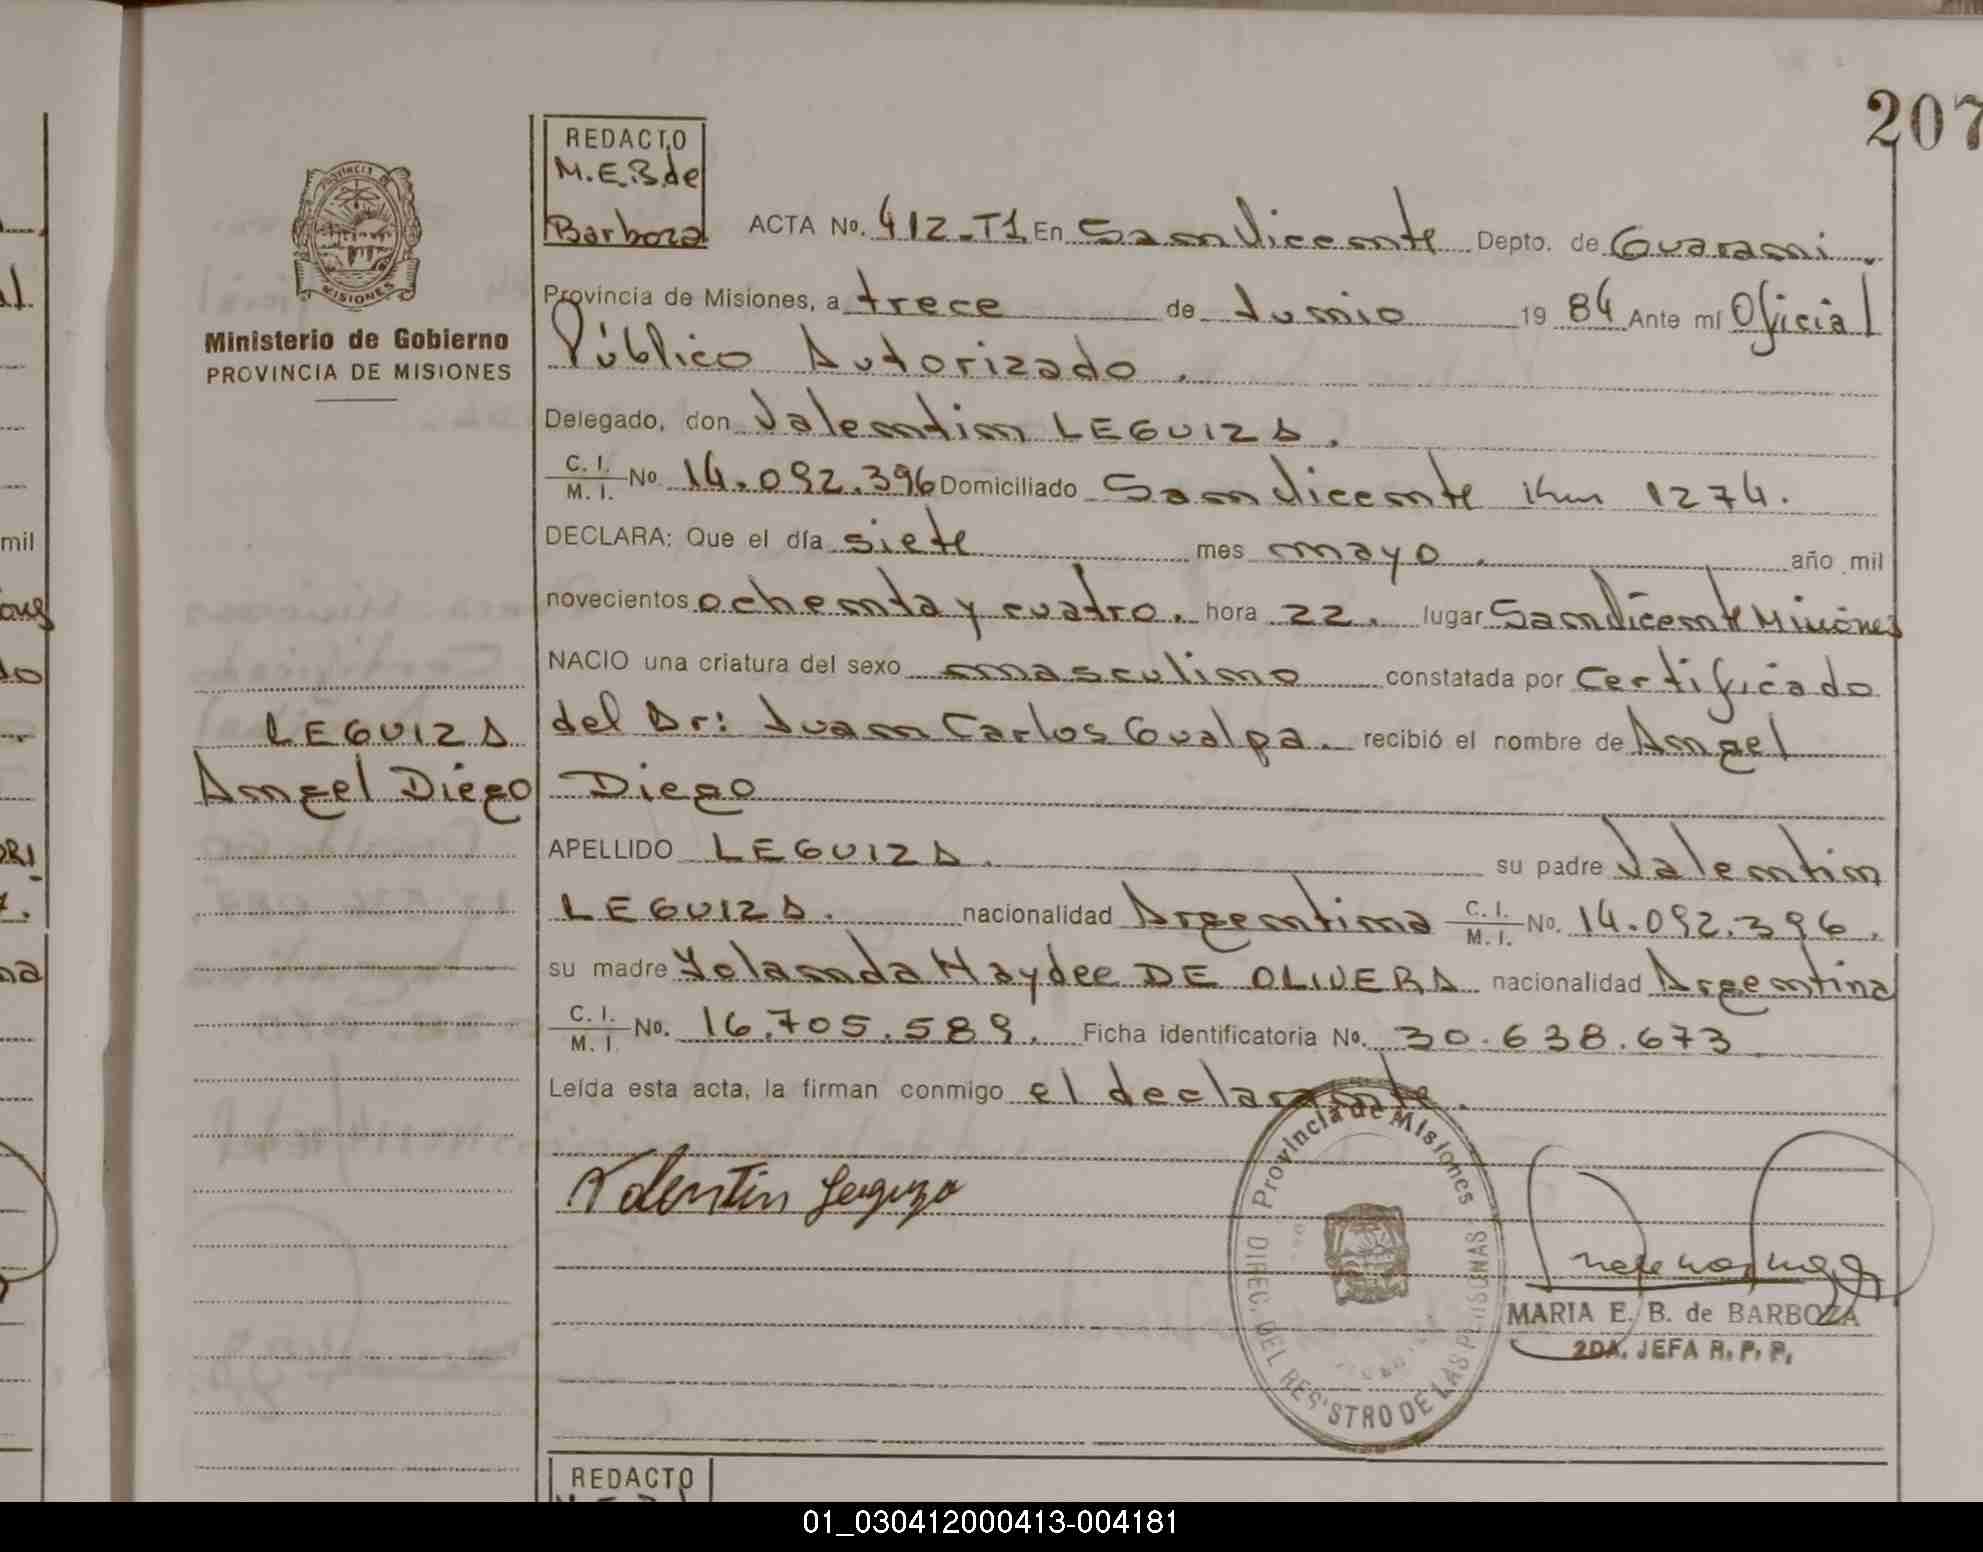 207
REDACTO
M.E.B. de
Barboza
PROVINCIA DE
MISIONES
Ministerio de Gobierno
PROVINCIA DE MISIONES
ACTA No. 412-T1 En San Vicente Depto. de Guarani.
Provincia de Misiones, a trece de Junio 1984 Ante mí Oficial
Público Autorizado.
Delegado, don Valentin LEGUIZA.
C. I. / M. I. No 14.092.396 Domiciliado San Vicente Km 1274.
DECLARA: Que el día siete mes mayo. año mil
novecientos ochenta y cuatro. hora 22. lugar San Vicente Misiones
NACIO una criatura del sexo masculino constatada por Certificado
del Dr: Juan Carlos Gualpa. recibió el nombre de Angel
Diego
LEGUIZA
Angel Diego
APELLIDO LEGUIZA. su padre Valentin
LEGUIZA. nacionalidad Argentina C. I. / M. I. No. 14.092.396.
su madre Yolanda Haydee DE OLIVERA nacionalidad Argentina
C. I. / M. I. No. 16.705.589. Ficha identificatoria No. 30.638.673
Leída esta acta, la firman conmigo el declarante.
Valentin Leguiza
Provincia de Misiones
DIREC. DEL REGISTRO DE LAS PERSONAS
MARIA E. B. de BARBOZA
2DA. JEFA R. P. P.
REDACTO
01_030412000413-004181